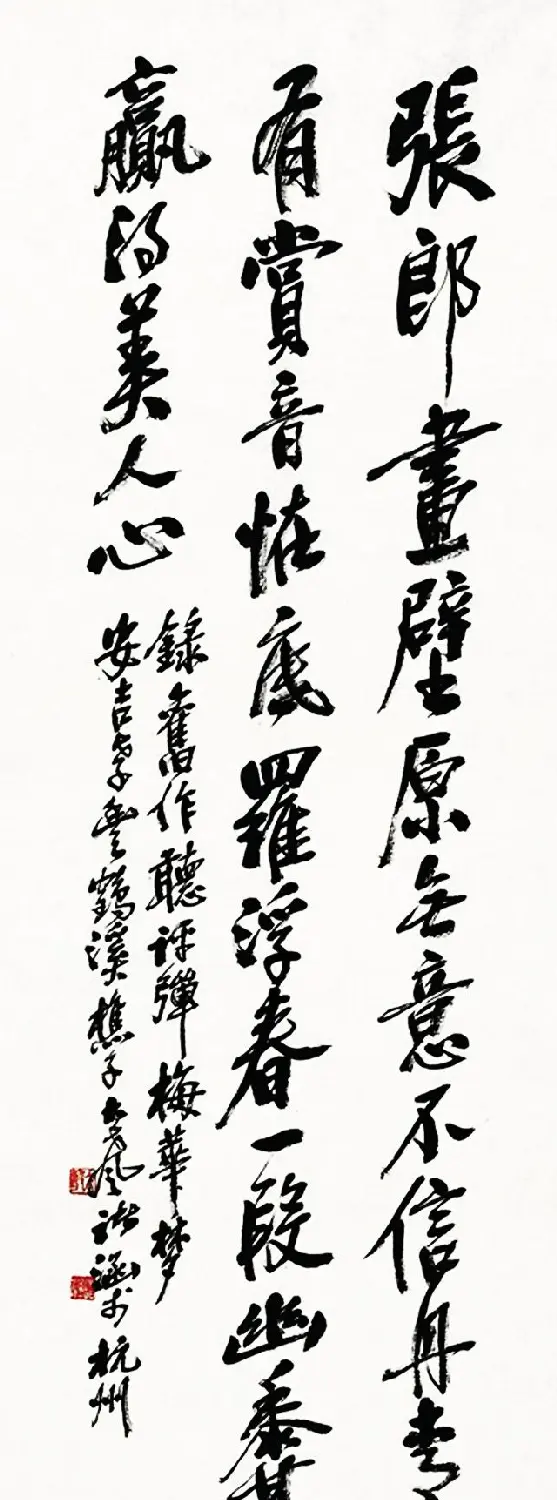 張郎畫壁原無意不信丹青
有賞音怪底羅浮春一段幽香
贏得美人心
錄舊作聽評彈梅華夢
安吉孝豐鶴溪樵子大風諸涵於杭州